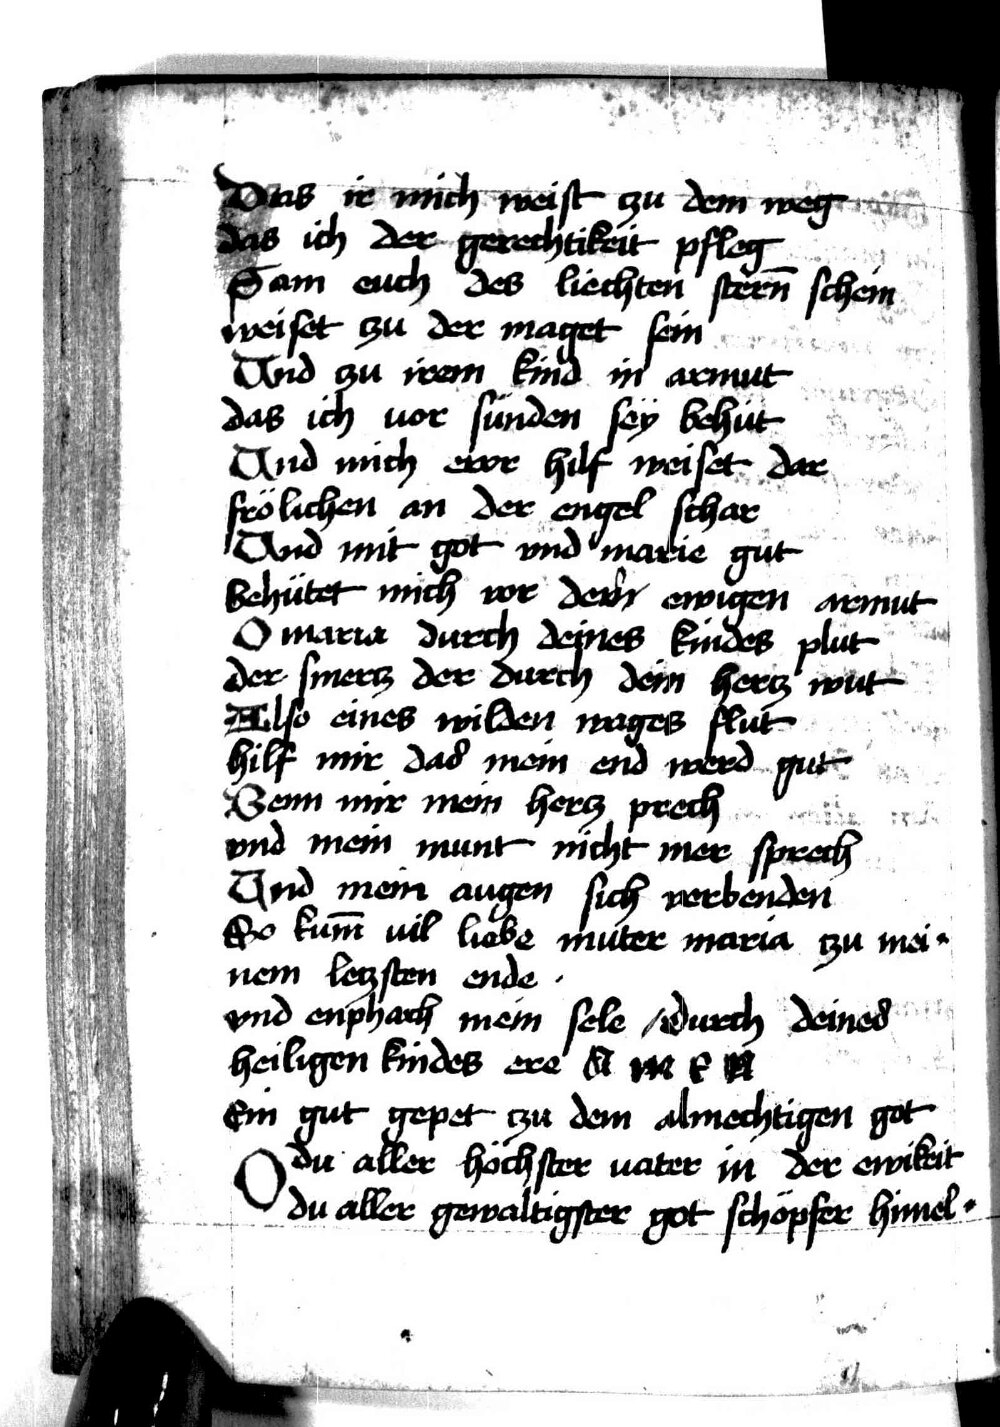 Das ir mich weist zu dem weg
das ich der gerechtikeit pfleg
Sam euch des liechten stern̄ schein
weiset zu der maget sein
Und zu irem kind in armut
das ich vor sünden seÿ behüt
Und mich ewr hilf weiset dar
frölichen an der engel schar
Und mit got vnd marie gut
behütet mich vor dem ewigen armut
O maria durch deines kindes plut
der smertz der durch dein hertz wut
Also eines wilden wages flut
hilf mir das mein end werd gut
Wenn mir mein hertz prech
vnd mein munt nicht mer sprech
Und mein augen sich verbenden
So kum̄ vil liebe muter maria zu mei-
nem letzsten ende .
vnd enphach mein sele / durch deines
heiligen kindes ere A M E N
Ein gut gepet zu dem almechtigen got
O du aller höchster vater in der ewikeit
du aller gewaltigster got schöpfer himel-